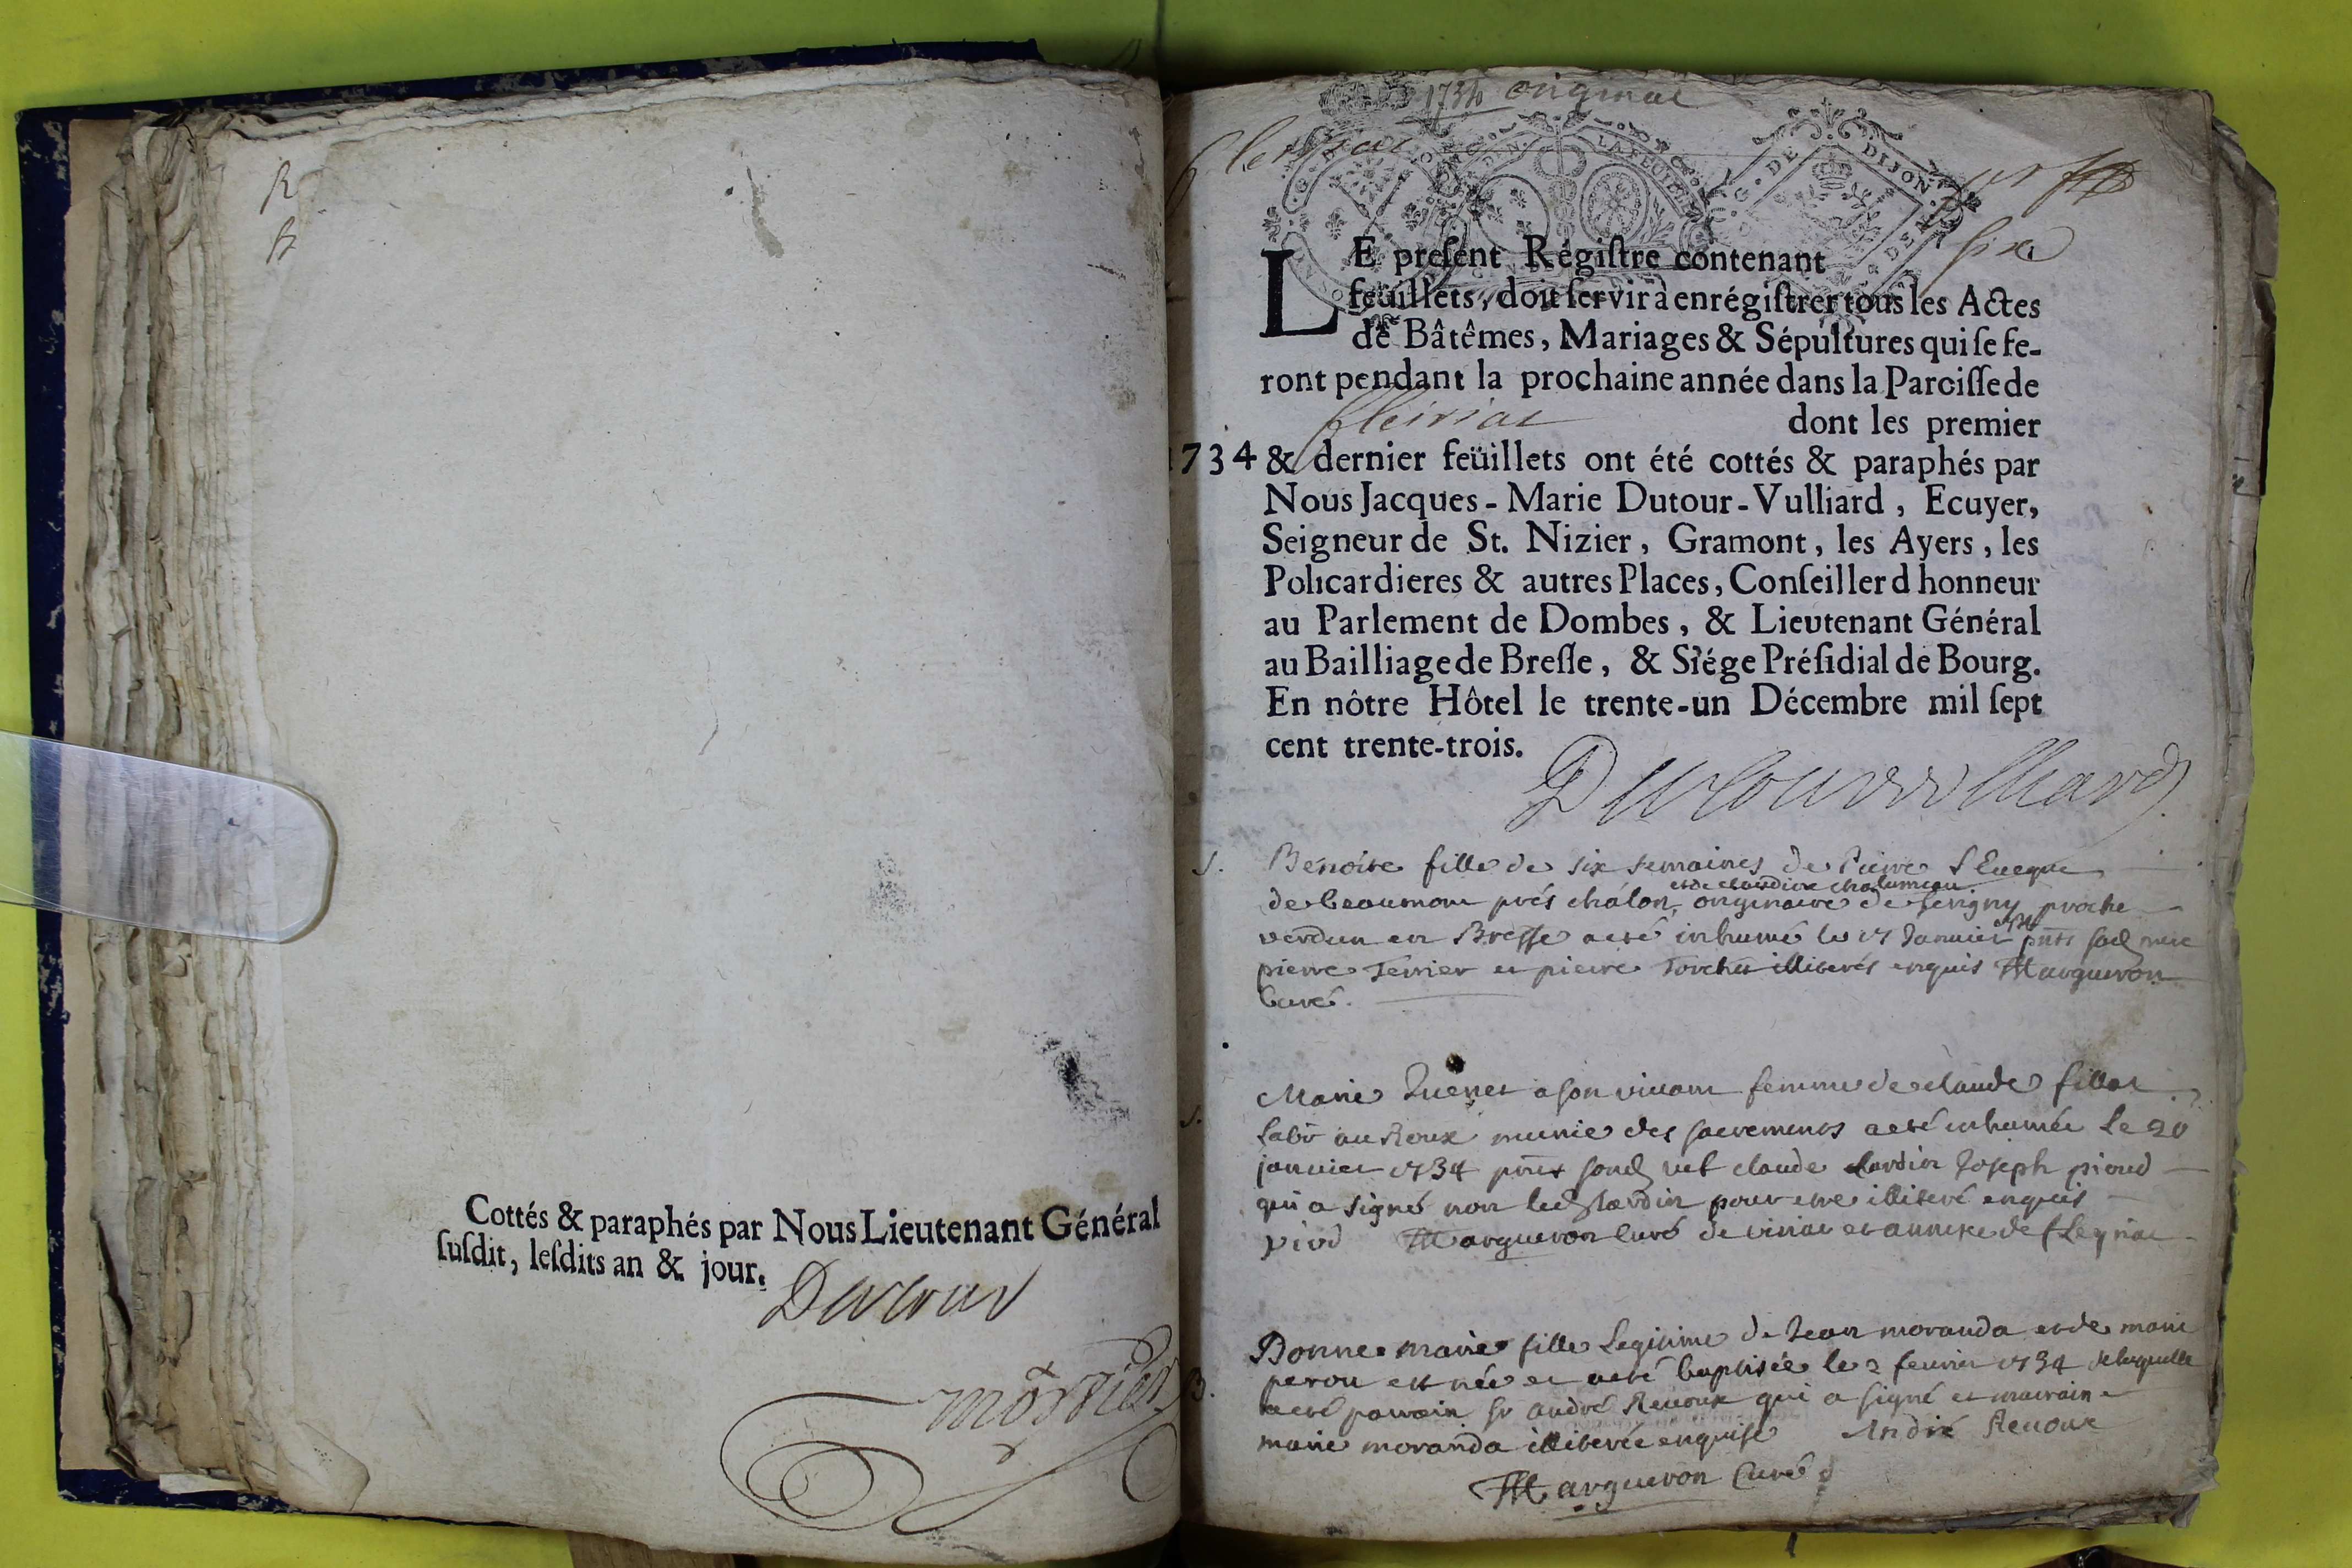 Cottés & paraphés par Nous Lieutenant Général
ſuſdit, leſdits an & jour.
Dutour
1734 original
DE DIJON
LE preſent Régiſtre contenant
feüillets, doit ſervir à enrégiſtrer tous les Actes
de Bâtêmes, Mariages & Sépultures qui ſe fe-
ront pendant la prochaine année dans la Paroiſſe de
fleiriat dont les premier
1734 & dernier feüillets ont été cottés & paraphés par
Nous Jacques-Marie Dutour-Vulliard, Ecuyer,
Seigneur de St. Nizier, Gramont, les Ayers, les
Policardieres & autres Places, Conſeiller d honneur
au Parlement de Dombes, & Lieutenant Général
au Bailliage de Breſſe, & Siége Préſidial de Bourg.
En nôtre Hôtel le trente-un Décembre mil ſept
cent trente-trois.
Dutourvulliard
S. Benoite fille de six semaines de Pierre
et de claudine chalumeau
de beaumont prés châlon, originaire de proche
verdun en Bresse a eté inhumé le 17 Janvier
pierre Terrier et pierre illiterés enquis Margueron
Curé.
S. Marie a son vivant femme de claude fillat
labr au Roux munie des sacremens a eté inhumée le 20
janvier 1734 claude Jardin Joseph pioud
qui a signé non led Jardin pour etre illiteré enquis
Margueron curé de viriat et annexe de fleyriat
B. Bonne marie fille legitime de Jean moranda et de marie
perou est née et a eté baptisée le 2 fevrier 1734 de laquelle
a eté parrain sr andré Revoux qui a signé et marraine
marie moranda illiterée enquise André Revoux
Margueron Curé